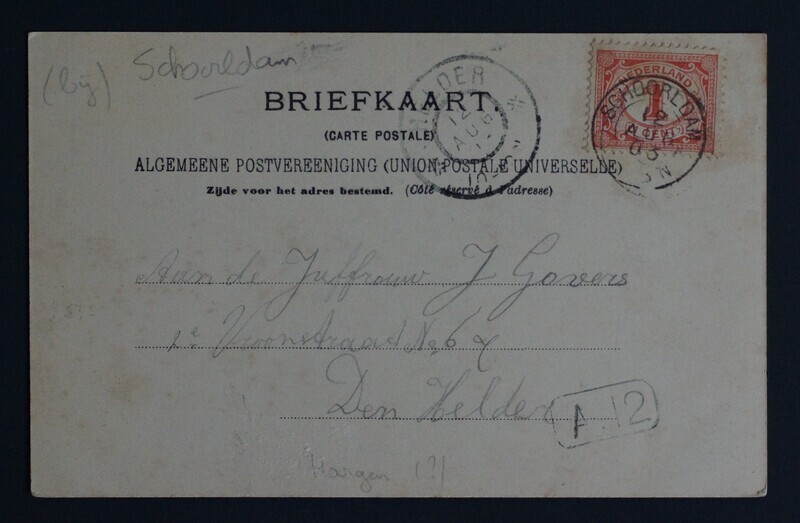 (bij) Schoorldam
BRIEFKAART.
(CARTE POSTALE)
ALGEMEENE POSTVEREENIGING (UNION POSTALE UNIVERSELLE)
Zijde voor het adres bestemd. (Côté réservé à l'adresse)
NEDERLAND
1
CENT
SCHOORLDAM
12
AUG
03
3 N
DER
12
AUG
Aan de Juffrouw J Govers
1e Vroonstraat No 67
Den Helder
A.12
Hargen (?)